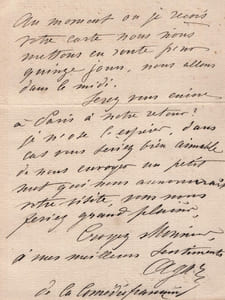 Au moment où je reçois
votre carte nous nous
mettons en route pour
quinze jours, nous allons
dans le midi.
Serez vous encore
à Paris à notre retour?
je n'ose l'espérer, dans
cas vous seriez bien aimable
de nous envoyer un petit
mot qui nous annoncerait
votre visite, vous nous
feriez grand plaisir,
Croyez Monsieur,
à mes meilleurs sentiments
Agar
de la Comédie française